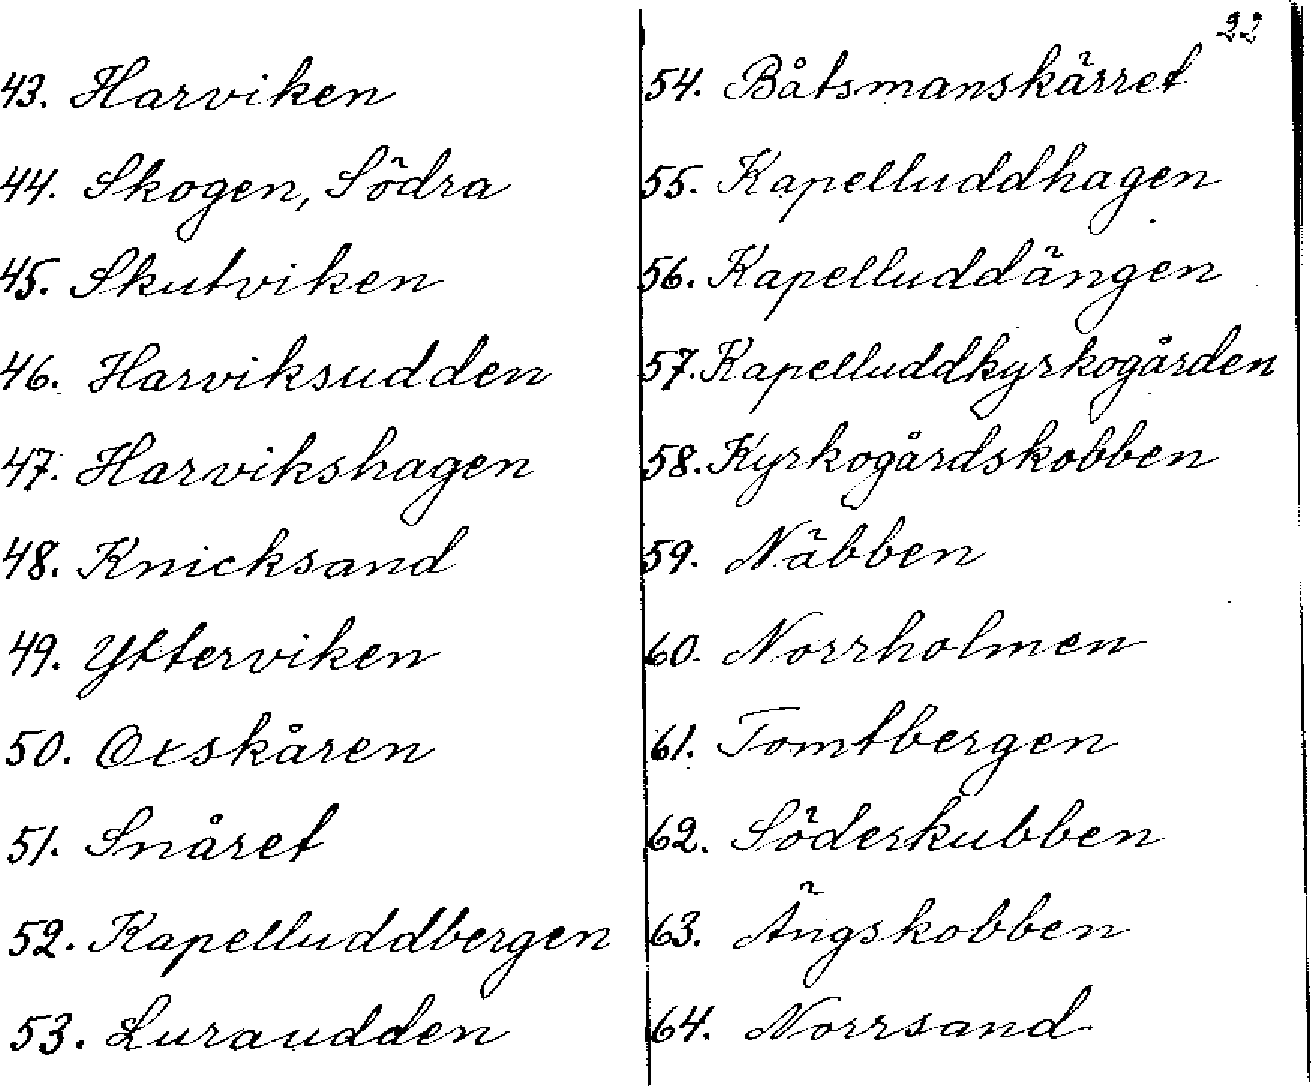 22
43. Harviken
44. Skogen, Södra
45. Skutviken
46. Harviksudden
47. Harvikshagen
48. Knicksand
49. Ytterviken
50. Oxskåren
51. Snåret
52. Kapelluddbergen
53. Luraudden
54. Båtsmanskärret
55. Kapelluddhagen
56. Kapelluddängen
57. Kapelluddkyrkogården
58. Kyrkogårdskobben
59. Näbben
60. Norrholmen
61. Tomtbergen
62. Söderkubben
63. Ängskobben
64. Norrsand